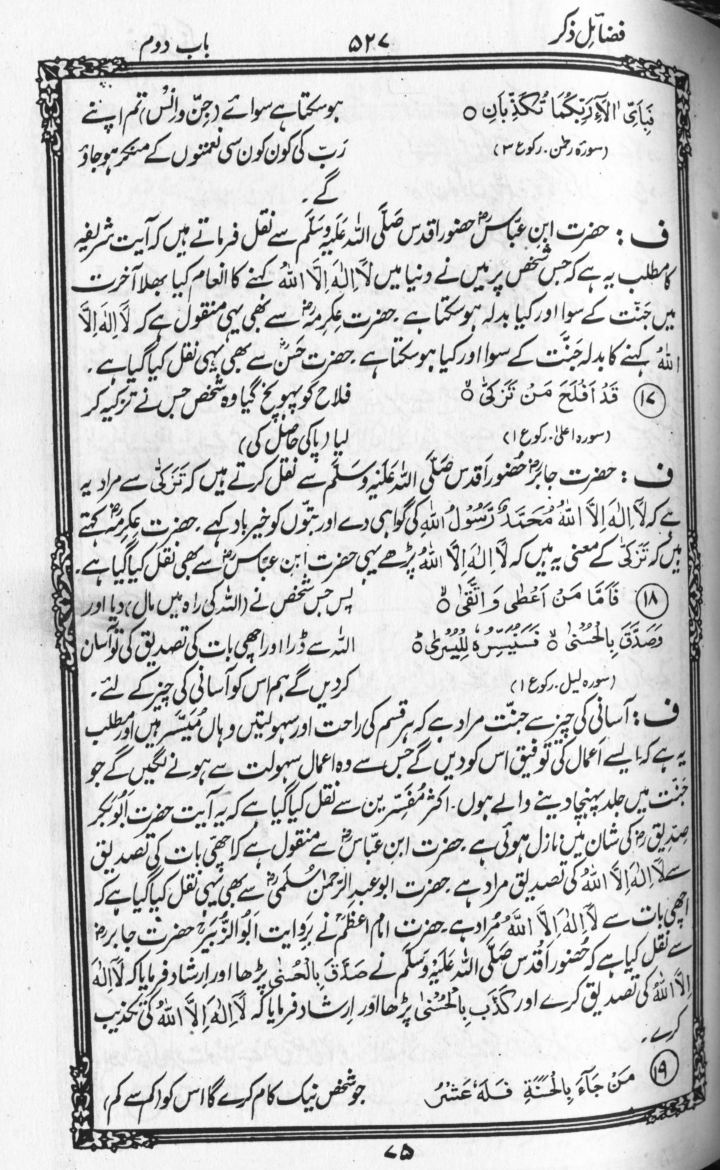 فضائل ذکر ۵۲۷ باب دوم
فَبِاَیِّ اٰلَآءِ رَبِّکُمَا تُکَذِّبَانِ ○ ہوسکتا ہے سوائے (جِنّ واِنْس) تم اپنے
(سورۂ رحمٰن۔ رکوع ۳) رَبّ کی کون کون سی نعمتوں کے منکر ہوجاؤ
گے۔
ف: حضرت ابنِ عبّاسؓ حضورِاقدس صَلَّی اللہُ عَلَیْہِ وَسَلَّم سے نقل فرماتے ہیں کہ آیت شریفہ
کا مطلب یہ ہے کہ جس شخص پر میں نے دنیا میں لَآ اِلٰہَ اِلَّا اللہُ کہنے کا انعام کیا بھلا آخرت
میں جنّت کے سوا اور کیا بدلہ ہوسکتا ہے۔ حضرت عِکرِمہؓ سے بھی یہی منقول ہے کہ لَآ اِلٰہَ اِلَّا
اللہُ کہنے کا بدلہ جنّت کے سوا اور کیا ہوسکتا ہے۔ حضرت حَسَنؓ سے بھی یہی نقل کیا گیا ہے۔
⑰ قَدْ اَفْلَحَ مَنْ تَزَکّٰی ○ فلاح کو پہونچ گیا وہ شخص جس نے تزکیہ کر
(سورہ اعلیٰ۔ رکوع ۱) لیا (پاکی حاصل کی)
ف: حضرت جابرؓ حُضورِاَقدس صَلَّی اللہُ عَلَیْہِ وَسَلَّم سے نقل کرتے ہیں کہ تَزَکّٰی سے مراد یہ
ہے کہ لَآ اِلٰہَ اِلَّا اللہُ مُحَمَّدٌ رَّسُوْلُ اللہِ کی گواہی دے اور بتّوں کو خیرباد کہے۔ حضرت عِکرِمہؓ کہتے
ہیں کہ تَزَکّٰی کے معنی یہ ہیں کہ لَآ اِلٰہَ اِلَّا اللہُ پڑھے یہی حضرت ابن عباسؓ سے بھی نقل کیا گیا ہے۔
⑱ فَاَمَّا مَنْ اَعْطٰی وَ اتَّقٰی ○ پس جس شخص نے (اللہ کی راہ میں مال) دیا اور
وَصَدَّقَ بِالْحُسْنٰی ○ فَسَنُیَسِّرُہٗ لِلْیُسْرٰی ○ اللہ سے ڈرا اور اچھی بات کی تصدیق کی تو آسان
(سورہ لیل۔ رکوع ۱) کردیں گے ہم اس کو آسانی کی چیز کے لئے۔
ف: آسانی کی چیز سے جنّت مراد ہے کہ ہر قسم کی راحت اور سہولتیں وہاں مُیَسَّر ہیں اور مطلب
یہ ہے کہ ایسے اَعمال کی توفیق اس کو دیں گے جس سے وہ اعمال سہولت سے ہونے لگیں گے جو
جنّت میں جلد پہنچا دینے والے ہوں۔ اکثر مُفَسِّرین سے نقل کیا گیا ہے کہ یہ آیت حضرت اَبُوبکر
صِدِّیقؓ کی شان میں نازل ہوئی ہے۔ حضرت ابن عبّاسؓ سے منقول ہے کہ اچھی بات کی تصدیق
سے لَآ اِلٰہَ اِلَّا اللہُ کی تصدیق مراد ہے۔ حضرت ابو عبدالرّحمٰن سُلَمیؓ سے بھی یہی نقل کیا گیا ہے کہ
اچھی بات سے لَآ اِلٰہَ اِلَّا اللہُ مُراد ہے۔ حضرت امام اعظمؒ نے بروایت اَبُوالزُّبَیرؒ حضرت جابرؓ
سے نقل کیا ہے کہ حُضورِاَقدس صَلَّی اللہُ عَلَیْہِ وَسَلَّم نے صَدَّقَ بِالْحُسْنٰی پڑھا اور اِرشاد فرمایا کہ لَآ اِلٰہَ
اِلَّا اللہُ کی تصدیق کرے اور کَذَّبَ بِالْحُسْنٰی پڑھا اور اِرشاد فرمایا کہ لَآ اِلٰہَ اِلَّا اللہُ کی تکذیب
کرے۔
⑲ مَنْ جَآءَ بِالْحَسَنَۃِ فَلَہٗ عَشْرُ جو شخص نیک کام کرے گا اس کو (کم سے کم)
۷۵